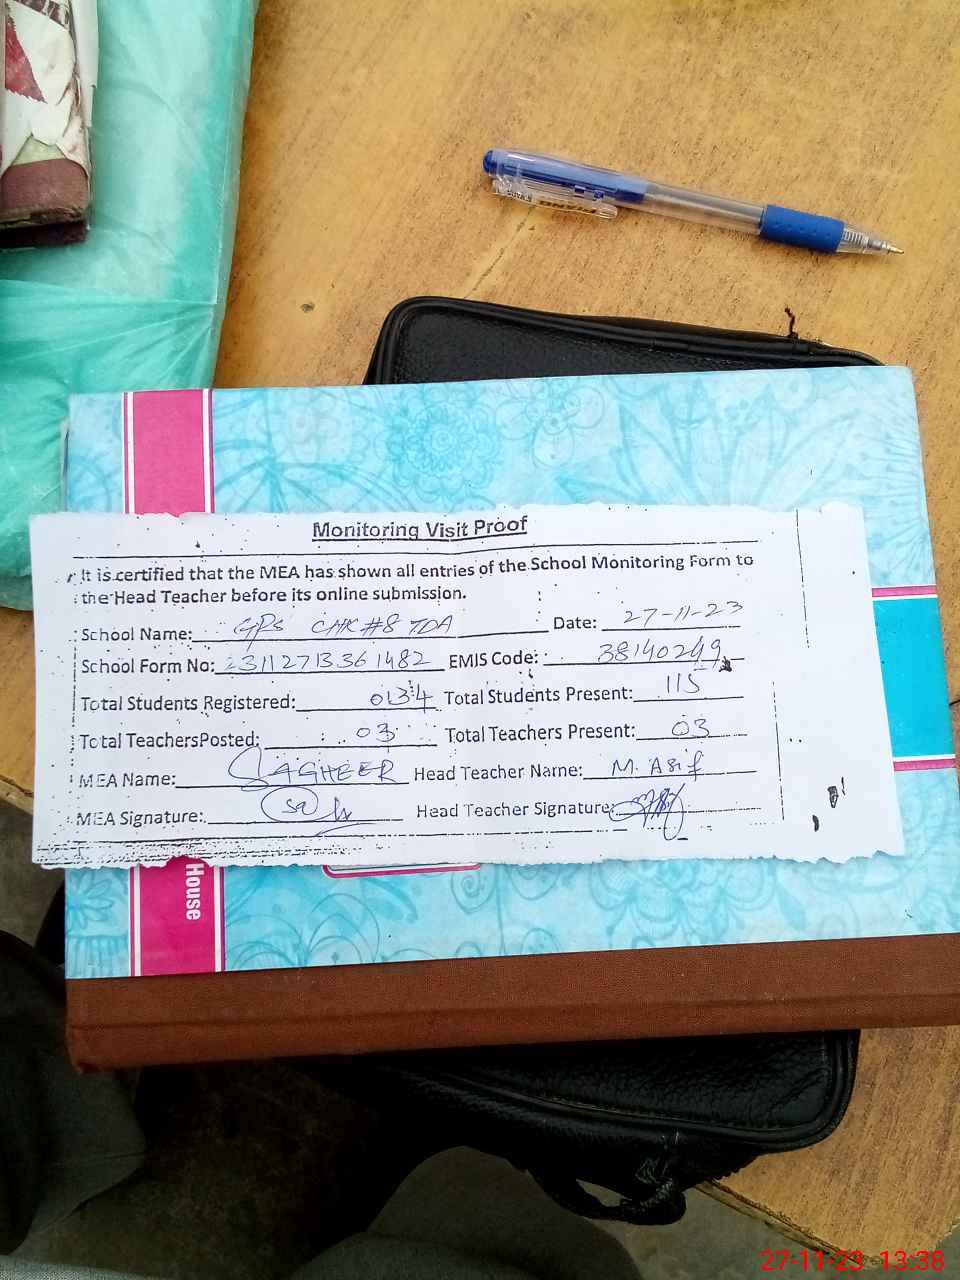 PIANO
Monitoring Visit Proof
It is certified that the MEA has shown all entries of the School Monitoring Form to
the Head Teacher before its online submission.
School Name: GPS CHK#8 TDA Date: 27-11-23
School Form No: 2311271336 1482 EMIS Code: 38140249
Total Students Registered: 0134 Total Students Present: 115
Total TeachersPosted: 03 Total Teachers Present: 03
MEA Name: SAGHEER Head Teacher Name: M. Asif
MEA Signature: Head Teacher Signature:
House
27-11-23 13:38